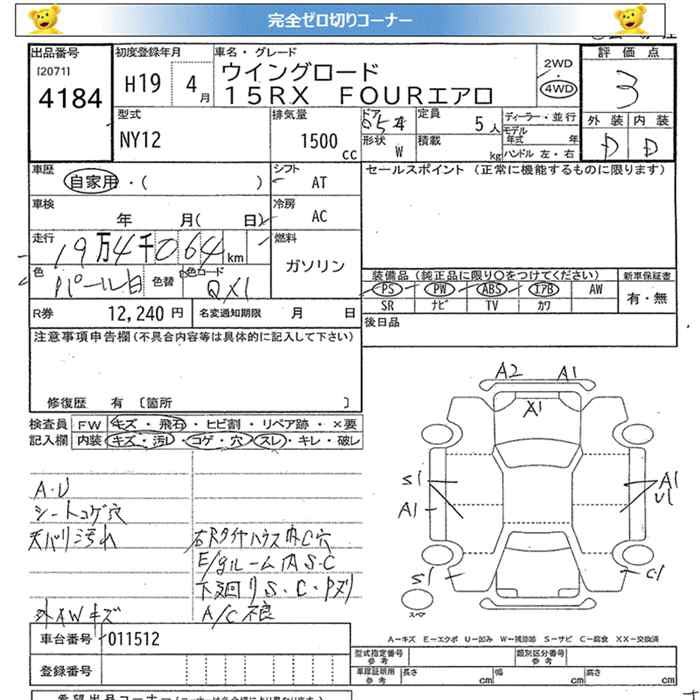 完全ゼロ切りコーナー
出品番号 初度登録年月 車名・グレード 評価点
[2071] 2WD
4184 H19 4月 ウイングロード 4WD 3
15RX FOURエアロ
外装 内装
D D
型式 排気量 ドア 定員 ディーラー・並行
NY12 1500cc 5人 モデル年式 年
形状 W 積載 kg ハンドル 左・右
車歴 シフト セールスポイント (正常に機能するものに限ります)
自家用・( ) AT
車検 冷房
年 月( 日) AC
走行 燃料
19万4千064km ガソリン
色 色替 色コード 装備品 (純正品に限り○をつけてください) 新車保証書
パール白 QX1 PS PW ABS エアB AW 有・無
SR ナビ TV カワ
R券 12,240円 名変通知期限 月 日 後日品
注意事項申告欄(不具合内容等は具体的に記入して下さい)
修復歴 有 〔箇所 〕
検査員 FW キズ・飛石・ヒビ割・リペア跡・×要
記入欄 内装 キズ・汚レ・コゲ・穴・スレ・キレ・破レ
A2 A1
X1
S1 A1
A1 U1
S1 C1
スペア
A・U
シートコゲ穴
天バリ汚れ 右Rタイヤハウス内C穴
E/gルーム内S・C
下廻りS・C・Pズリ
外AWキズ A/C不良
車台番号 011512
A−キズ E−エクボ U−凹み W−補修跡 S−サビ C−腐食 XX−交換済
登録番号 型式指定番号 参考 類別区分番号 参考
車庫証明用 参考 長さ cm 幅 cm 高さ cm
希望出品コーナー